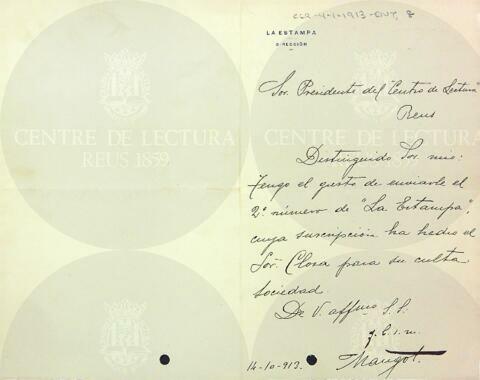 CCR-4-1-1913-ENT, 8
LA ESTAMPA
DIRECCIÓN
Sor. Presidente del "Centro de Lectura"
Reus
Distinguido Sor. mio:
Tengo el gusto de enviarle el
2º. número de "La Estampa",
cuya suscripción ha hecho el
Sor. Closa para su culta
sociedad.
De V. affmo S. S.
q. b. s. m.
Maugot.
14-10-913.
CENTRE DE LECTURA
REUS 1859
CENTRE DE LECTURA
REUS 1859